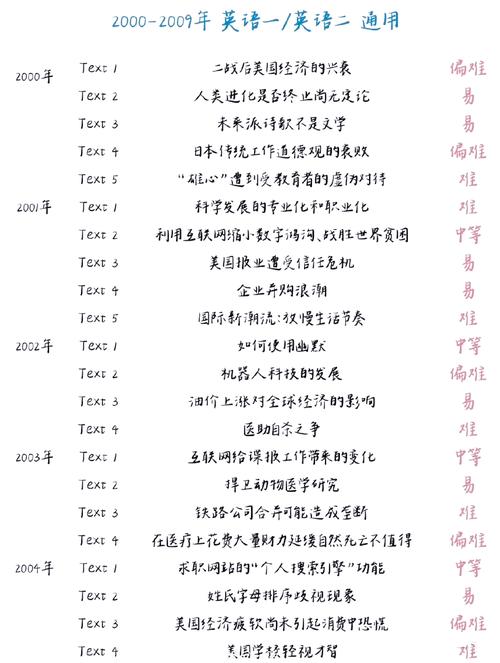 2000-2009年 英语一/英语二 通用
2000年 Text 1 二战后美国经济的兴衰 偏难
Text 2 人类进化是否终止尚无定论 易
Text 3 未来派诗歌不是文学 易
Text 4 日本传统工作道德观的衰败 偏难
Text 5 “雄心”遭到受教育者的虚伪对待 难
2001年 Text 1 科学发展的专业化和职业化 难
Text 2 利用互联网缩小数字鸿沟、战胜世界贫困 中等
Text 3 美国报业遭受信任危机 易
Text 4 企业并购浪潮 易
Text 5 国际新潮流:放慢生活节奏 难
2002年 Text 1 如何使用幽默 中等
Text 2 机器人科技的发展 偏难
Text 3 油价上涨对全球经济的影响 易
Text 4 医助自杀之争 难
2003年 Text 1 互联网给谍报工作带来的变化 中等
Text 2 捍卫动物医学研究 易
Text 3 铁路公司合并可能造成垄断 难
Text 4 在医疗上花费大量财力延缓自然死亡不值得 偏难
2004年 Text 1 求职网站的“个人搜索引擎”功能 中等
Text 2 姓氏字母排序歧视现象 易
Text 3 美国经济疲软尚未引起消费中恐慌 偏难
Text 4 美国学校轻视才智 难